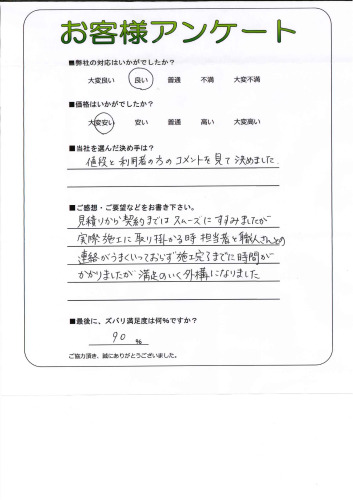 お客様アンケート
■弊社の対応はいかがでしたか？
大変良い 良い 普通 不満 大変不満
■価格はいかがでしたか？
大変安い 安い 普通 高い 大変高い
■当社を選んだ決め手は？
値段と利用者の方のコメントを見て決めました
■ご感想・ご要望などをお書き下さい。
見積りから契約まではスムーズにすすみましたが
実際施工に取り掛かる時担当者と職人さんとの
連絡がうまくいっておらず施工完了までに時間が
かかりましたが満足のいく外構になりました
■最後に、ズバリ満足度は何%ですか？
90 %
ご協力頂き、誠にありがとうございました。